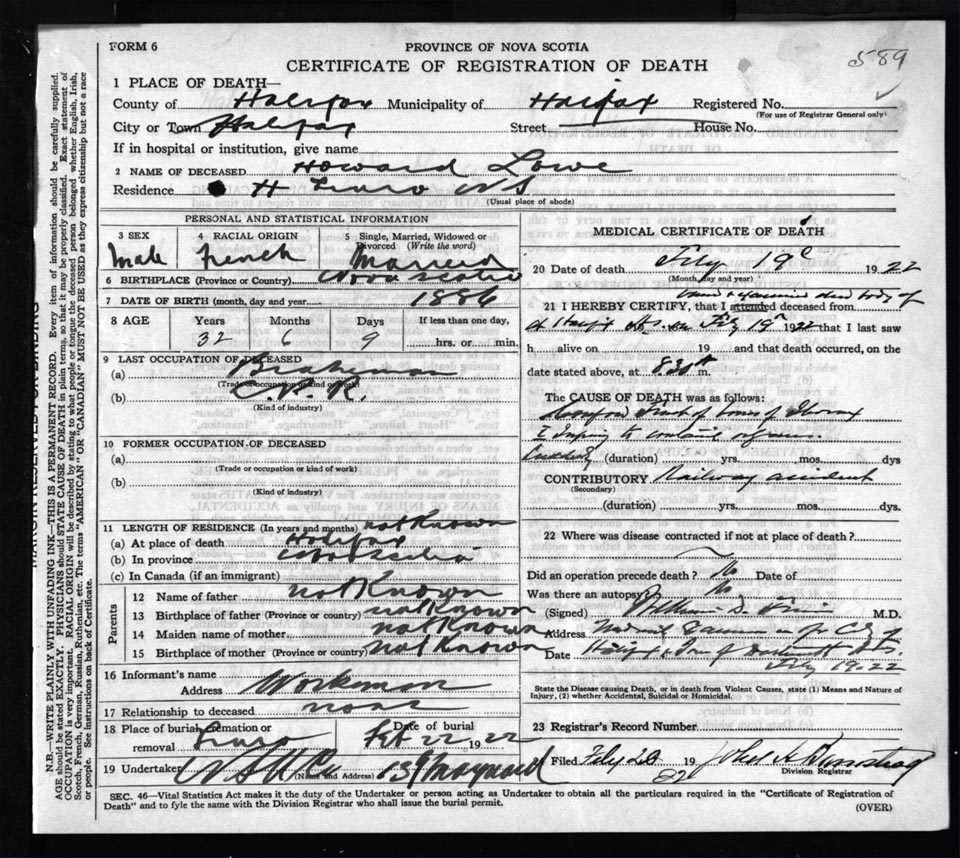 FORM 6
PROVINCE OF NOVA SCOTIA
CERTIFICATE OF REGISTRATION OF DEATH
589
1 PLACE OF DEATH—
County of Halifax Municipality of Halifax Registered No.
(For use of Registrar General only)
City or Town Halifax Street House No.
If in hospital or institution, give name
2 NAME OF DECEASED Howard Lowe
Residence Truro N S
(Usual place of abode)
PERSONAL AND STATISTICAL INFORMATION
3 SEX
male
4 RACIAL ORIGIN
French
5 Single, Married, Widowed or Divorced (Write the word)
Married
6 BIRTHPLACE (Province or Country) Nova Scotia
7 DATE OF BIRTH (month, day and year) 1886
8 AGE Years Months Days If less than one day,
32 6 9 hrs. or min.
9 LAST OCCUPATION OF DECEASED
(a) Brakeman
(Trade or occupation or kind of work)
(b) C. N. R.
(Kind of industry)
10 FORMER OCCUPATION OF DECEASED
(a)
(Trade or occupation or kind of work)
(b)
(Kind of industry)
11 LENGTH OF RESIDENCE (In years and months) not Known
(a) At place of death Halifax
(b) In province Nova Scotia
(c) In Canada (if an immigrant)
Parents
12 Name of father not Known
13 Birthplace of father (Province or country) not Known
14 Maiden name of mother not Known
15 Birthplace of mother (Province or country) not Known
16 Informant's name
Address Workman
17 Relationship to deceased none
18 Place of burial, cremation or removal Truro
Date of burial Feb 22 1922
19 Undertaker
(Name and Address) Maynard
MEDICAL CERTIFICATE OF DEATH
20 Date of death Feby 19 1922
(Month, day and year)
21 I HEREBY CERTIFY, that I attended deceased from
viewed & examined dead body of
at Feby 19 1922 that I last saw
h alive on 19 and that death occurred, on the
date stated above, at 8.30 m.
The CAUSE OF DEATH was as follows:
Compound of bones of Thorax
& Injury to contained organs.
(duration) yrs. mos. dys
CONTRIBUTORY Railway accident
(Secondary)
(duration) yrs. mos. dys.
22 Where was disease contracted if not at place of death?
Did an operation precede death? No Date of
Was there an autopsy? No
(Signed) William D. M.D.
Address Medical Examiner for City of
Date Halifax & Town of Dartmouth N.S.
Feby 19. 22
State the Disease causing Death, or in death from Violent Causes, state (1) Means and Nature of
Injury, (2) whether Accidental, Suicidal or Homicidal.
23 Registrar's Record Number
Filed Feby 19 22 John A
Division Registrar
SEC. 46—Vital Statistics Act makes it the duty of the Undertaker or person acting as Undertaker to obtain all the particulars required in the "Certificate of Registration of
Death" and to fyle the same with the Division Registrar who shall issue the burial permit.
(OVER)
MARGIN RESERVED FOR BINDING
N.B.—WRITE PLAINLY WITH UNFADING INK—THIS IS A PERMANENT RECORD. Every item of information should be carefully supplied.
AGE should be stated EXACTLY. PHYSICIANS should STATE CAUSE OF DEATH in plain terms, so that it may be properly classified. Exact statement of
OCCUPATION is very important. RACIAL ORIGIN will be described by stating to what people or tongue the deceased person belonged whether English, Irish,
Scotch, French, German, Russian, Ruthenian, etc. The terms "AMERICAN" or "CANADIAN" MUST NOT BE USED as they express citizenship but not a race
or people. See instructions on back of Certificate.